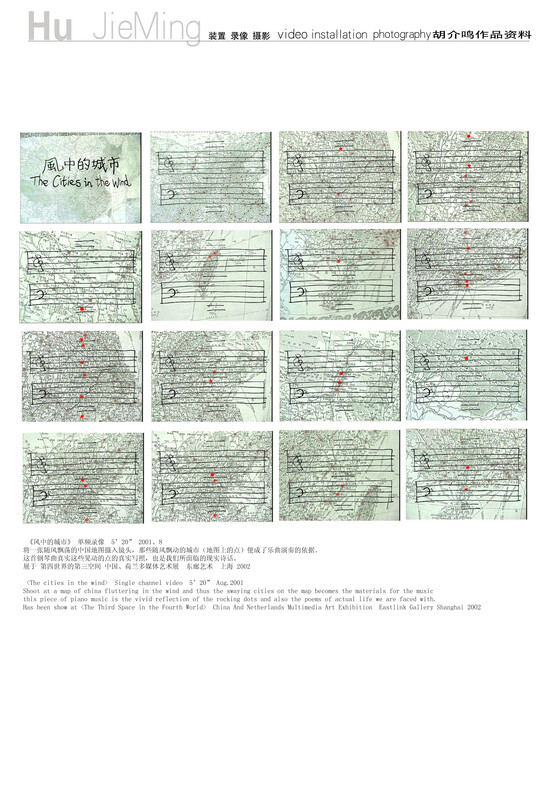 Hu JieMing 装置 录像 摄影 video installation photography 胡介鸣作品资料
風中的城市
The Cities in the Wind
《风中的城市》 单频录像 5′20″ 2001、8
将一张随风飘荡的中国地图摄入镜头，那些随风飘动的城市（地图上的点）便成了乐曲演奏的依据，
这首钢琴曲真实这些晃动的点的真实写照，也是我们所面临的现实诗话。
展于 第四世界的第三空间 中国、荷兰多媒体艺术展 东廊艺术 上海 2002
<The cities in the wind> Single channel video 5′20″ Aug.2001
Shoot at a map of china fluttering in the wind and thus the swaying cities on the map becomes the materials for the music
this piece of piano music is the vivid reflection of the rocking dots and also the poems of actual life we are faced with.
Has been show at <The Third Space in the Fourth World> China And Netherlands Multimedia Art Exhibition Eastlink Gallery Shanghai 2002